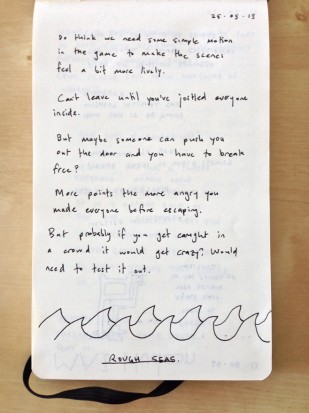 25-03-13
Do think we need some simple motion
in the game to make the scenes
feel a bit more lively.
Can't leave until you've jostled everyone
inside.
But maybe someone can push you
out the door and you have to break
free?
More points the more angry you
made everyone before escaping.
But probably if you get caught in
a crowd it would get crazy? Would
need to test it out.
ROUGH SEAS.